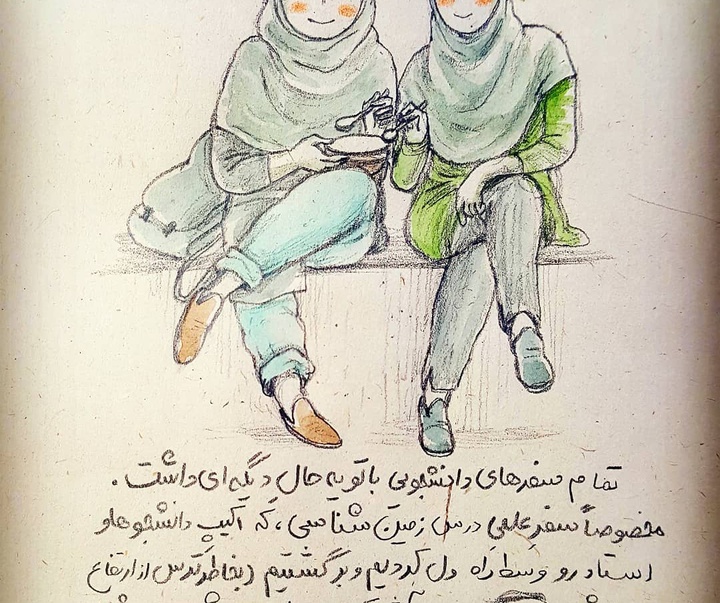 تمام سفرهای دانشجویی با تو یه حال دیگه ای داشت.
مخصوصاً سفر علمی درس زمین شناسی، که اکیپ دانشجوها و
استاد رو وسط راه ول کردیم و برگشتیم (بخاطر ترس از ارتفاع